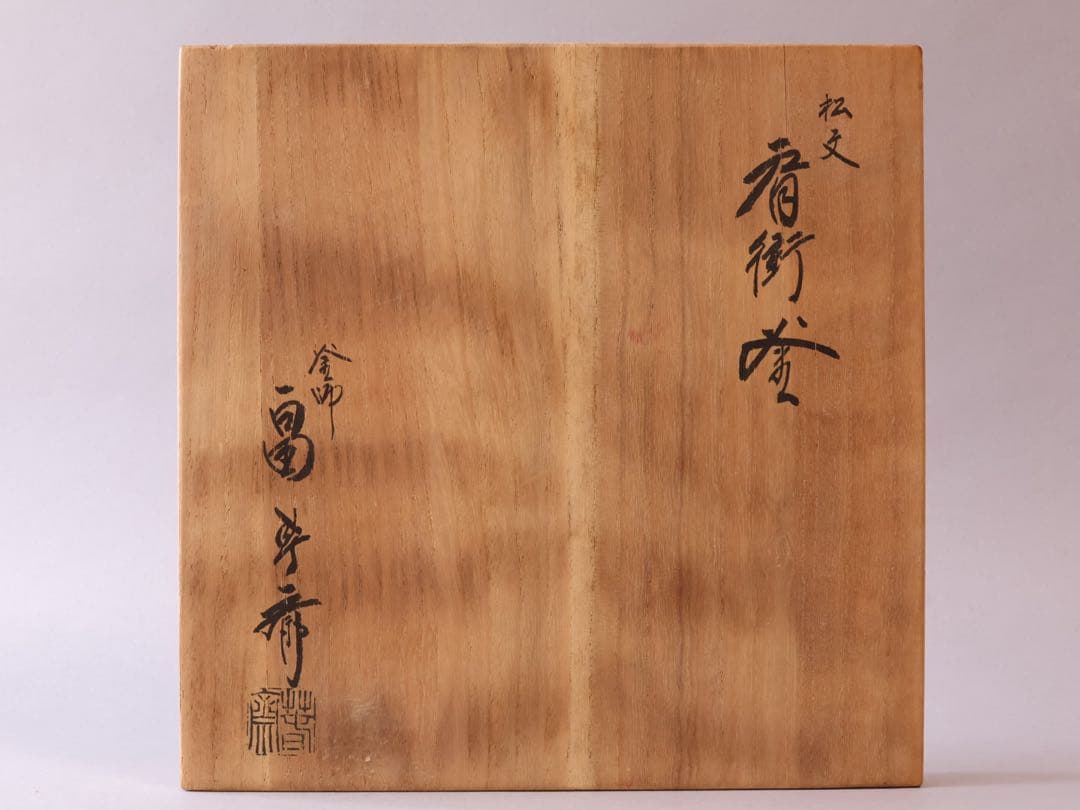 松文
肩衝釜
釜師
畠春斎